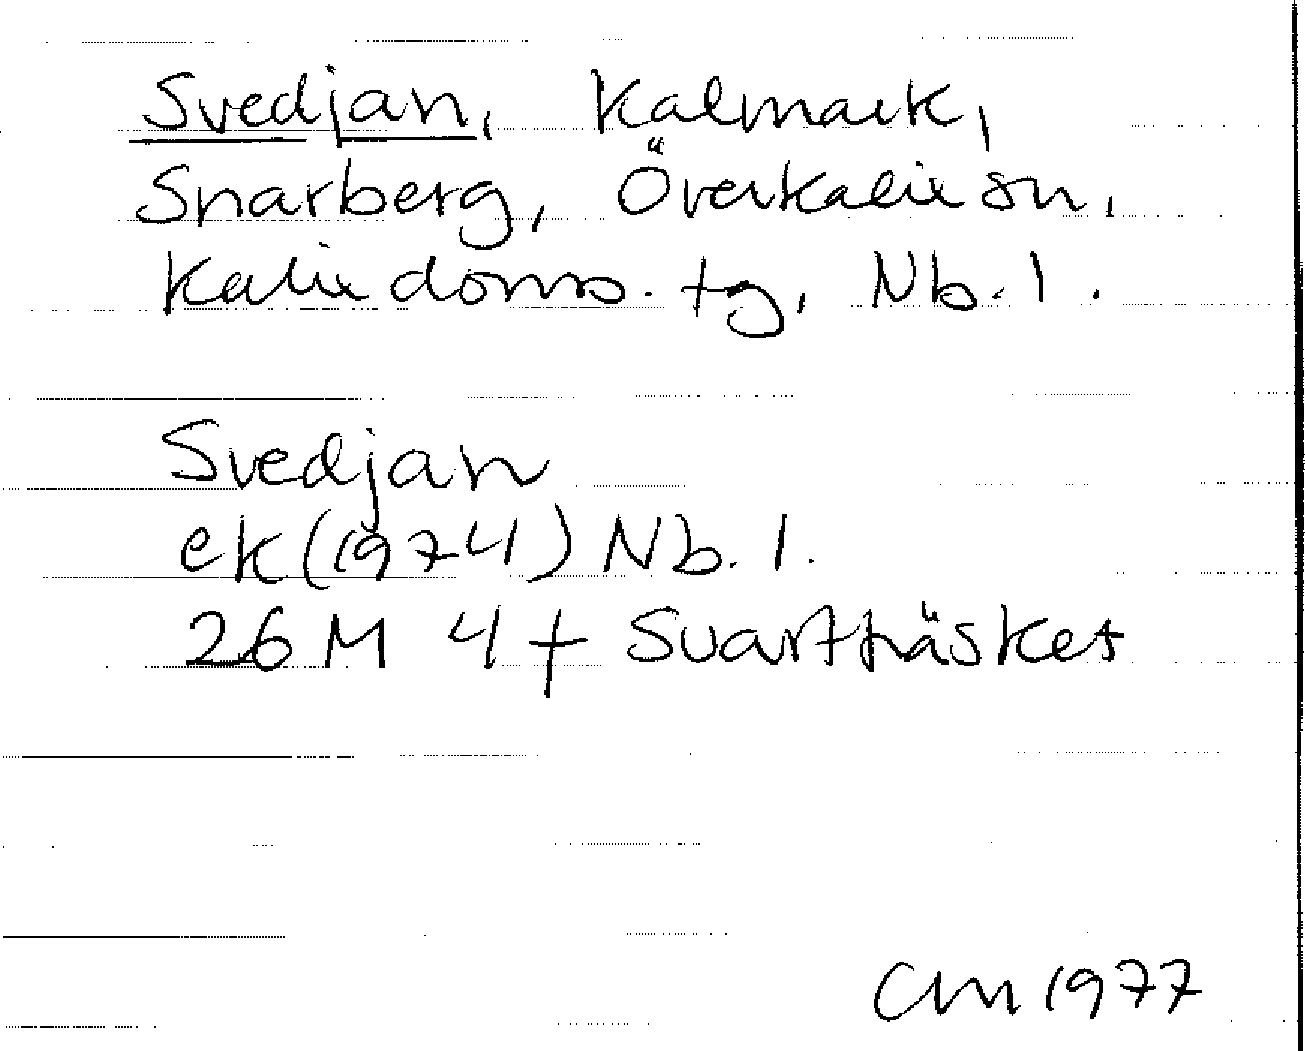 Svedjan, Kalmark,
Snarberg, Överkalix sn,
Kalix doms. tg, Nb. l.
Svedjan
ek (1974) Nb. l.
26 M 4 f Svartträsket
CM 1977